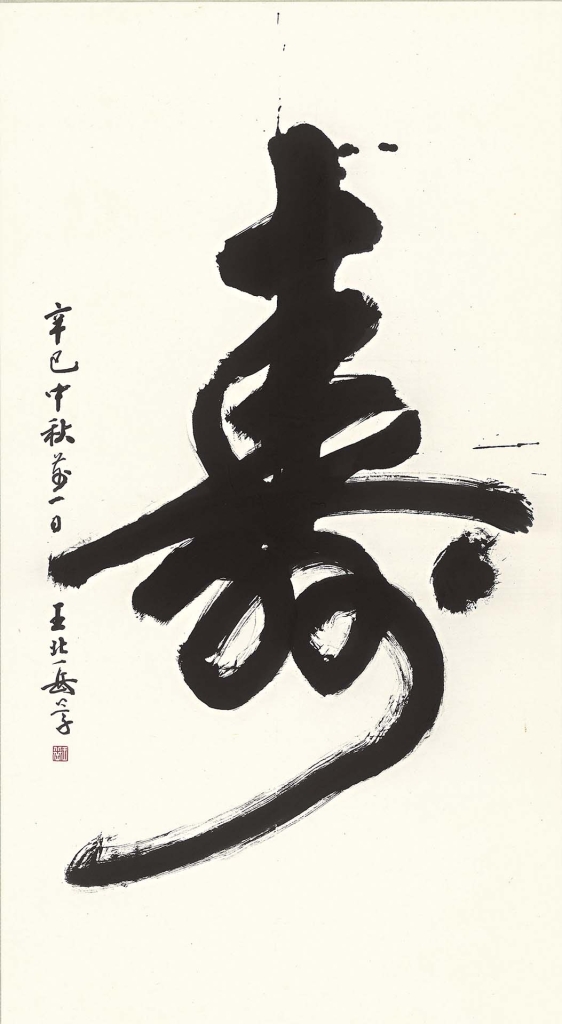 壽
辛巳中秋前一日 王北岳學